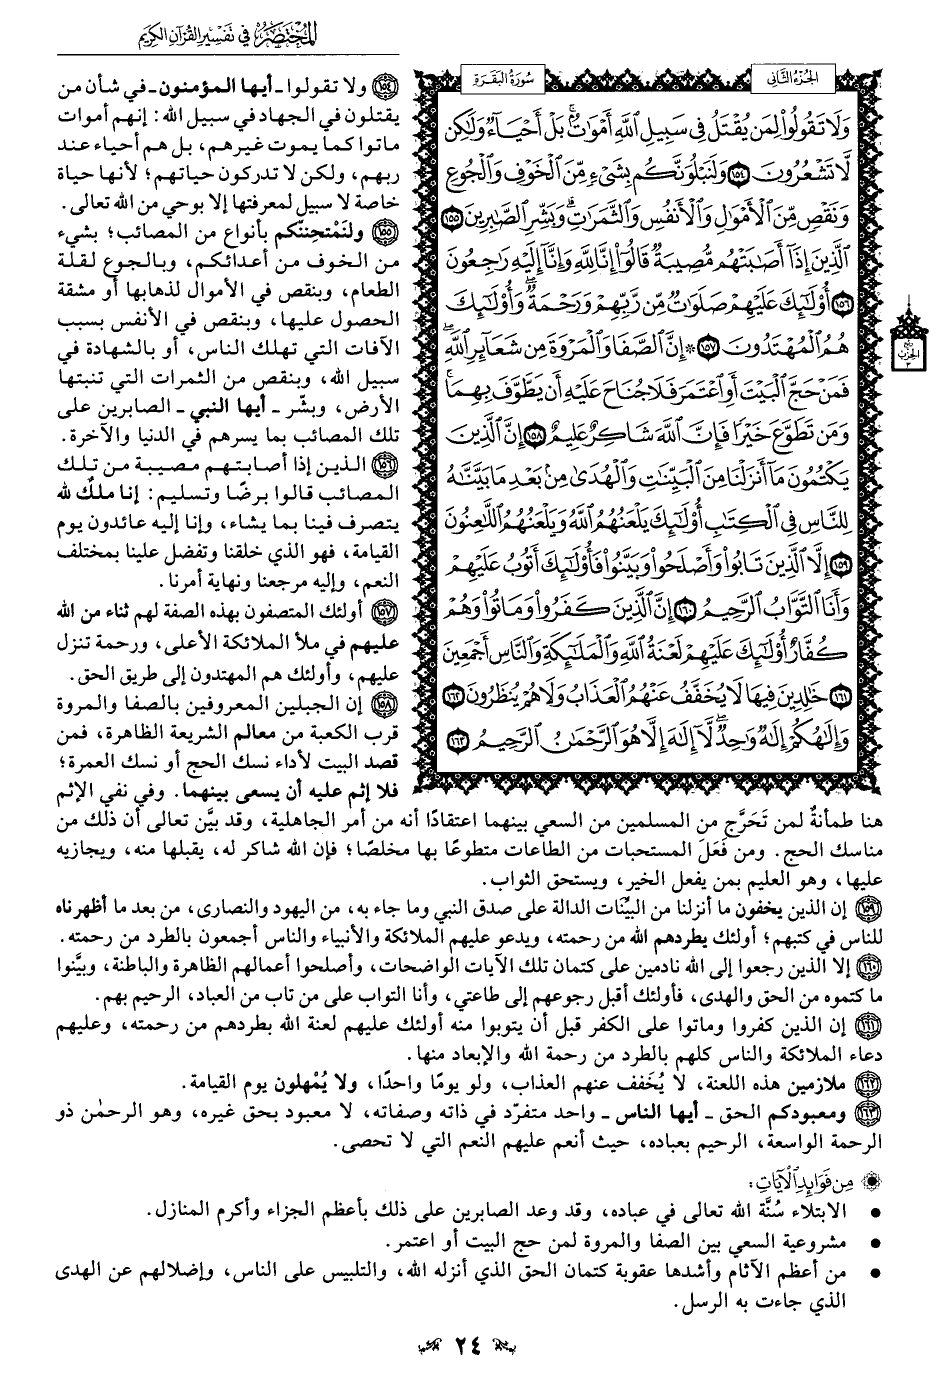 المختصر في تفسير القرآن الكريم
الجزء الثاني
سورة البقرة
وَلَا تَقُولُوا۟ لِمَن يُقْتَلُ فِى سَبِيلِ ٱللَّهِ أَمْوَٰتٌۢ ۚ بَلْ أَحْيَآءٌ وَلَٰكِن
لَّا تَشْعُرُونَ ١٥٤ وَلَنَبْلُوَنَّكُم بِشَىْءٍ مِّنَ ٱلْخَوْفِ وَٱلْجُوعِ
وَنَقْصٍ مِّنَ ٱلْأَمْوَٰلِ وَٱلْأَنفُسِ وَٱلثَّمَرَٰتِ ۗ وَبَشِّرِ ٱلصَّٰبِرِينَ ١٥٥
ٱلَّذِينَ إِذَآ أَصَٰبَتْهُم مُّصِيبَةٌ قَالُوٓا۟ إِنَّا لِلَّهِ وَإِنَّآ إِلَيْهِ رَٰجِعُونَ
١٥٦ أُو۟لَٰٓئِكَ عَلَيْهِمْ صَلَوَٰتٌ مِّن رَّبِّهِمْ وَرَحْمَةٌ ۖ وَأُو۟لَٰٓئِكَ
هُمُ ٱلْمُهْتَدُونَ ١٥٧ ۞ إِنَّ ٱلصَّفَا وَٱلْمَرْوَةَ مِن شَعَآئِرِ ٱللَّهِ ۖ
فَمَنْ حَجَّ ٱلْبَيْتَ أَوِ ٱعْتَمَرَ فَلَا جُنَاحَ عَلَيْهِ أَن يَطَّوَّفَ بِهِمَا ۚ
وَمَن تَطَوَّعَ خَيْرًا فَإِنَّ ٱللَّهَ شَاكِرٌ عَلِيمٌ ١٥٨ إِنَّ ٱلَّذِينَ
يَكْتُمُونَ مَآ أَنزَلْنَا مِنَ ٱلْبَيِّنَٰتِ وَٱلْهُدَىٰ مِنۢ بَعْدِ مَا بَيَّنَّٰهُ
لِلنَّاسِ فِى ٱلْكِتَٰبِ أُو۟لَٰٓئِكَ يَلْعَنُهُمُ ٱللَّهُ وَيَلْعَنُهُمُ ٱللَّٰعِنُونَ
١٥٩ إِلَّا ٱلَّذِينَ تَابُوا۟ وَأَصْلَحُوا۟ وَبَيَّنُوا۟ فَأُو۟لَٰٓئِكَ أَتُوبُ عَلَيْهِمْ
وَأَنَا ٱلتَّوَّابُ ٱلرَّحِيمُ ١٦٠ إِنَّ ٱلَّذِينَ كَفَرُوا۟ وَمَاتُوا۟ وَهُمْ
كُفَّارٌ أُو۟لَٰٓئِكَ عَلَيْهِمْ لَعْنَةُ ٱللَّهِ وَٱلْمَلَٰٓئِكَةِ وَٱلنَّاسِ أَجْمَعِينَ
١٦١ خَٰلِدِينَ فِيهَا لَا يُخَفَّفُ عَنْهُمُ ٱلْعَذَابُ وَلَا هُمْ يُنظَرُونَ ١٦٢
وَإِلَٰهُكُمْ إِلَٰهٌ وَٰحِدٌ ۖ لَّآ إِلَٰهَ إِلَّا هُوَ ٱلرَّحْمَٰنُ ٱلرَّحِيمُ ١٦٣
ربع
الحزب
٣
١٥٤ ولا تقولوا - أيها المؤمنون - في شأن من
يقتلون في الجهاد في سبيل الله: إنهم أموات
ماتوا كما يموت غيرهم، بل هم أحياء عند
ربهم، ولكن لا تدركون حياتهم؛ لأنها حياة
خاصة لا سبيل لمعرفتها إلا بوحي من الله تعالى.
١٥٥ ولنمتحننّكم بأنواع من المصائب؛ بشيء
من الخوف من أعدائكم، وبالجوع لقلة
الطعام، وبنقص في الأموال لذهابها أو مشقة
الحصول عليها، وبنقص في الأنفس بسبب
الآفات التي تهلك الناس، أو بالشهادة في
سبيل الله، وبنقص من الثمرات التي تنبتها
الأرض، وبشّر - أيها النبي - الصابرين على
تلك المصائب بما يسرهم في الدنيا والآخرة.
١٥٦ الذين إذا أصابتهم مصيبة من تلك
المصائب قالوا برضًا وتسليم: إنا ملكٌ لله
يتصرف فينا بما يشاء، وإنا إليه عائدون يوم
القيامة، فهو الذي خلقنا وتفضل علينا بمختلف
النعم، وإليه مرجعنا ونهاية أمرنا.
١٥٧ أولئك المتصفون بهذه الصفة لهم ثناء من الله
عليهم في ملأ الملائكة الأعلى، ورحمة تنزل
عليهم، وأولئك هم المهتدون إلى طريق الحق.
١٥٨ إن الجبلين المعروفين بالصفا والمروة
قرب الكعبة من معالم الشريعة الظاهرة، فمن
قصد البيت لأداء نسك الحج أو نسك العمرة؛
فلا إثم عليه أن يسعى بينهما. وفي نفي الإثم
هنا طمأنةٌ لمن تَحَرَّج من المسلمين من السعي بينهما اعتقادًا أنه من أمر الجاهلية، وقد بيَّن تعالى أن ذلك من
مناسك الحج. ومن فَعَلَ المستحبات من الطاعات متطوعًا بها مخلصًا؛ فإن الله شاكر له، يقبلها منه، ويجازيه
عليها، وهو العليم بمن يفعل الخير، ويستحق الثواب.
١٥٩ إن الذين يخفون ما أنزلنا من البيِّنات الدالة على صدق النبي وما جاء به، من اليهود والنصارى، من بعد ما أظهرناه
للناس في كتبهم؛ أولئك يطردهم الله من رحمته، ويدعو عليهم الملائكة والأنبياء والناس أجمعون بالطرد من رحمته.
١٦٠ إلا الذين رجعوا إلى الله نادمين على كتمان تلك الآيات الواضحات، وأصلحوا أعمالهم الظاهرة والباطنة، وبيَّنوا
ما كتموه من الحق والهدى، فأولئك أقبل رجوعهم إلى طاعتي، وأنا التواب على من تاب من العباد، الرحيم بهم.
١٦١ إن الذين كفروا وماتوا على الكفر قبل أن يتوبوا منه أولئك عليهم لعنة الله بطردهم من رحمته، وعليهم
دعاء الملائكة والناس كلهم بالطرد من رحمة الله والإبعاد منها.
١٦٢ ملازمين هذه اللعنة، لا يُخَفف عنهم العذاب، ولو يومًا واحدًا، ولا يُمْهلون يوم القيامة.
١٦٣ ومعبودكم الحق - أيها الناس - واحد متفرّد في ذاته وصفاته، لا معبود بحق غيره، وهو الرحمٰن ذو
الرحمة الواسعة، الرحيم بعباده، حيث أنعم عليهم النعم التي لا تحصى.
من فوائد الآيات:
• الابتلاء سُنَّة الله تعالى في عباده، وقد وعد الصابرين على ذلك بأعظم الجزاء وأكرم المنازل.
• مشروعية السعي بين الصفا والمروة لمن حج البيت أو اعتمر.
• من أعظم الآثام وأشدها عقوبة كتمان الحق الذي أنزله الله، والتلبيس على الناس، وإضلالهم عن الهدى
الذي جاءت به الرسل.
٢٤